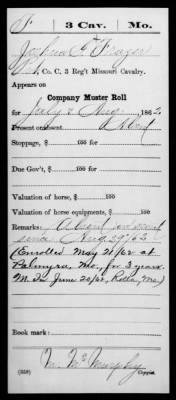 F | 3 Cav. | Mo.
Joshua C. Frazer
Pvt., Co. C, 3 Reg't Missouri Cavalry.
Appears on
Company Muster Roll
for July & Aug, 1862.
Present or absent Absent
Stoppage, $ 100 for
Due Gov't, $ 100 for
Valuation of horse, $ 100
Valuation of horse equipments, $ 100
Remarks: Absent on scout
since Aug 29/62
(Enrolled May 21/62 at
Palmyra, Mo, for 3 years.
M. In June 20/62, Rolla, Mo)
Book mark:
(358)
Copyist.